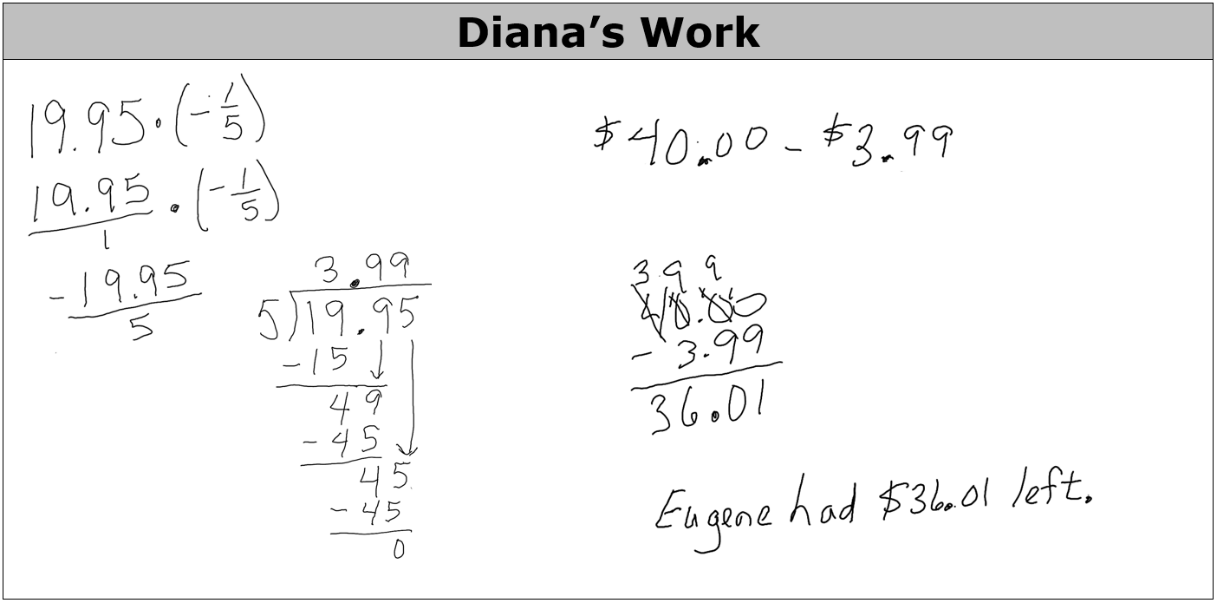 Diana's Work
19.95 · (-1/5)
19.95/1 · (-1/5)
-19.95/5
3.99
5)19.95
-15
49
-45
45
-45
0
$40.00 - $3.99
3 9 9
40.00
- 3.99
36.01
Eugene had $36.01 left.